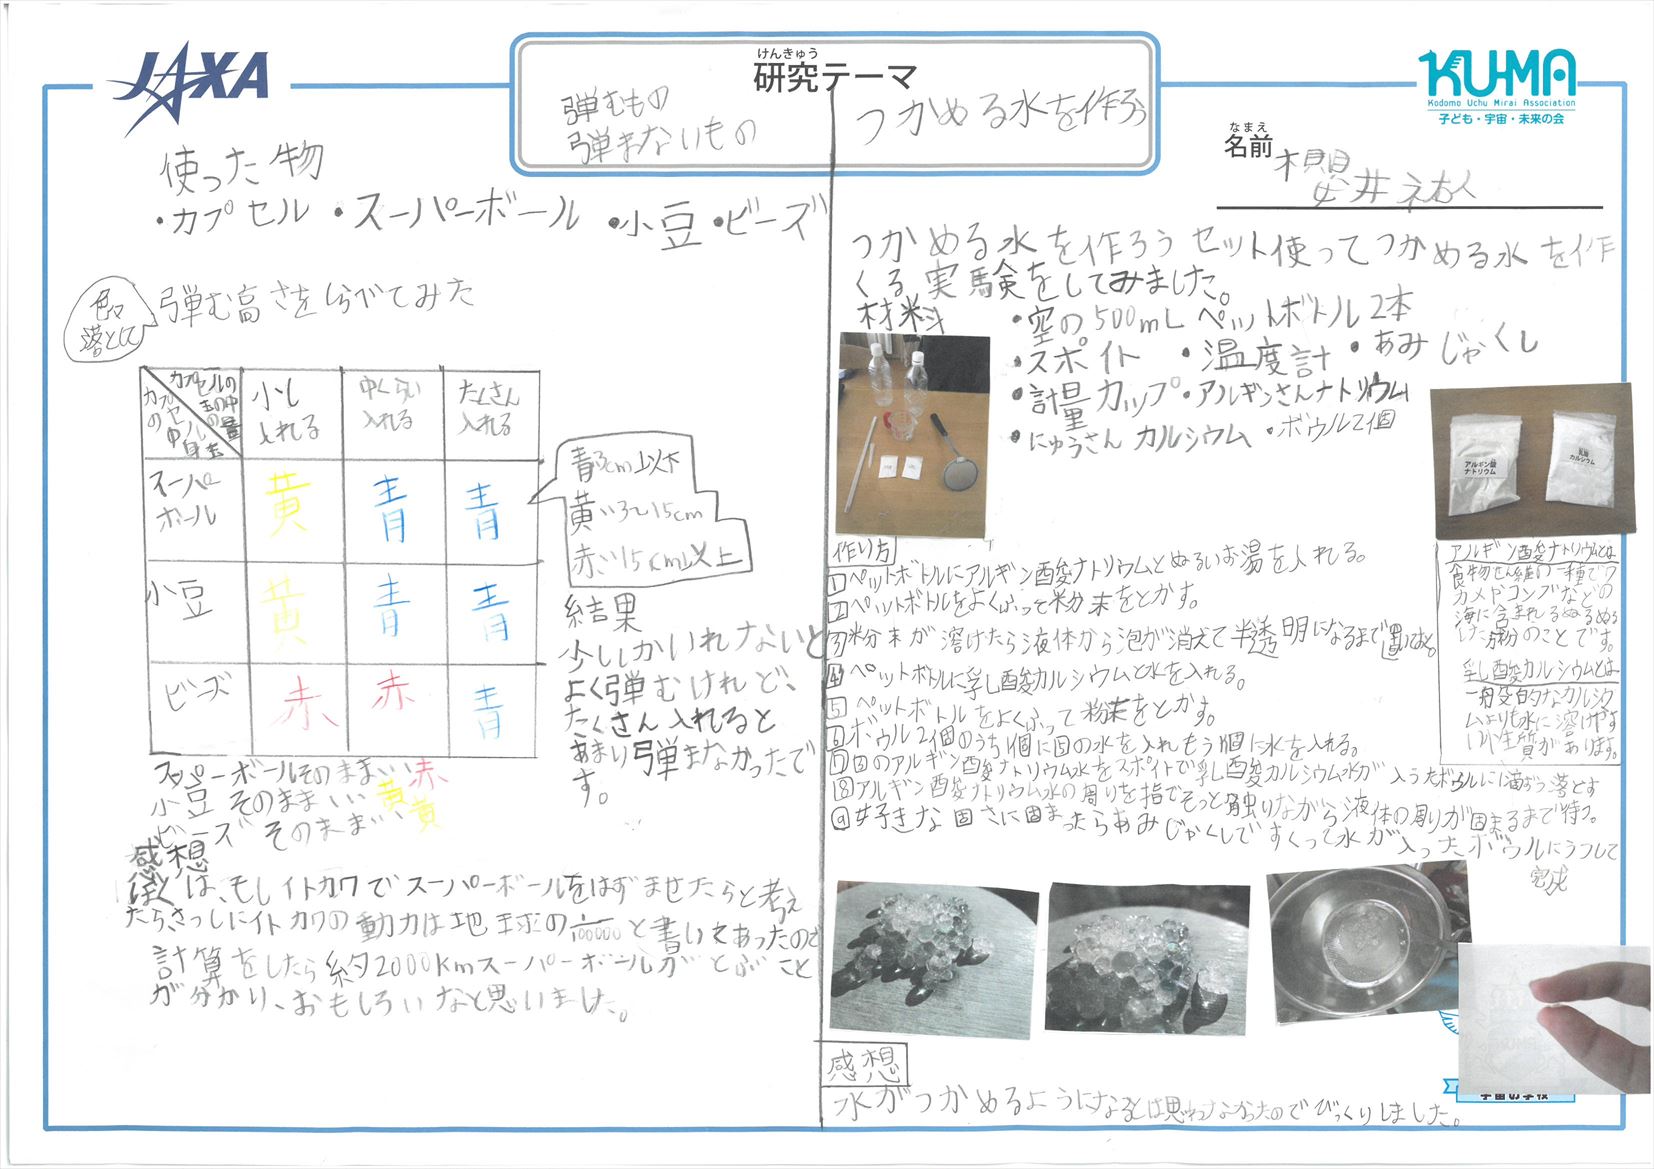 JAXA
けんきゅう
研究テーマ
弾むもの
弾まないもの
つかめる水を作ろう
KU-MA
Kodomo Uchu Mirai Association
子ども・宇宙・未来の会
なまえ
名前
使った物
・カプセル ・スーパーボール ・小豆 ・ビーズ
色々
落として
弾む高さをしらべてみた
カプセルの中の量
カプセルの中身
少し
入れる
中くらい
入れる
たくさん
入れる
スーパー
ボール
黄
青
青
小豆
黄
青
青
ビーズ
赤
赤
青
青3cm以下
黄…3~15cm
赤…15cm以上
結果
少ししかいれないと
よく弾むけれど、
たくさん入れると
あまり弾まなかったで
す。
スーパーボールそのまま…赤
小豆そのまま…黄
ビーズそのまま…黄
感想
ぼくは、もしイトカワでスーパーボールをはずませたらと考え
たらさっしにイトカワの動力は地球の1/100000と書いてあったので
計算をしたら約2000kmスーパーボールがとぶこと
が分かり、おもしろいなと思いました。
つかめる水を作ろうセット使ってつかめる水を作
くる実験をしてみました。
材料
・空の500mLペットボトル2本
・スポイト ・温度計 ・あみじゃくし
・計量カップ・アルギンさんナトリウム
・にゅうさんカルシウム ・ボウル2個
アルギン酸
ナトリウム
乳酸
カルシウム
作り方
1 ペットボトルにアルギン酸ナトリウムとぬるいお湯を入れる。
2 ペットボトルをよくふって粉末をとかす。
3 粉末が溶けたら液体から泡が消えて半透明になるまで置いておく。
4 ペットボトルに乳酸カルシウムと水を入れる。
5 ペットボトルをよくふって粉末をとかす。
6 ボウル2個のうち1個に5の水を入れもう1個に水を入れる。
7 3のアルギン酸ナトリウム水をスポイトで乳酸カルシウム水が入ったボウルに1滴ずつ落とす
8 アルギン酸ナトリウム水の周りを指でそっと触りながら液体の周りが固まるまで待つ。
9 好きな固さに固まったらあみじゃくしですくって水が入ったボウルにうつして
完成
アルギン酸ナトリウムとは
食物せん維の一種でワ
カメやコンブなどの
海に含まれるぬるぬる
した成分のことです。
乳酸カルシウムとは
一般的なカルシウ
ムよりも水に溶けやす
い性質があります。
感想
水がつかめるようになるとは思わなかったのでびっくりしました。
宇宙の学校